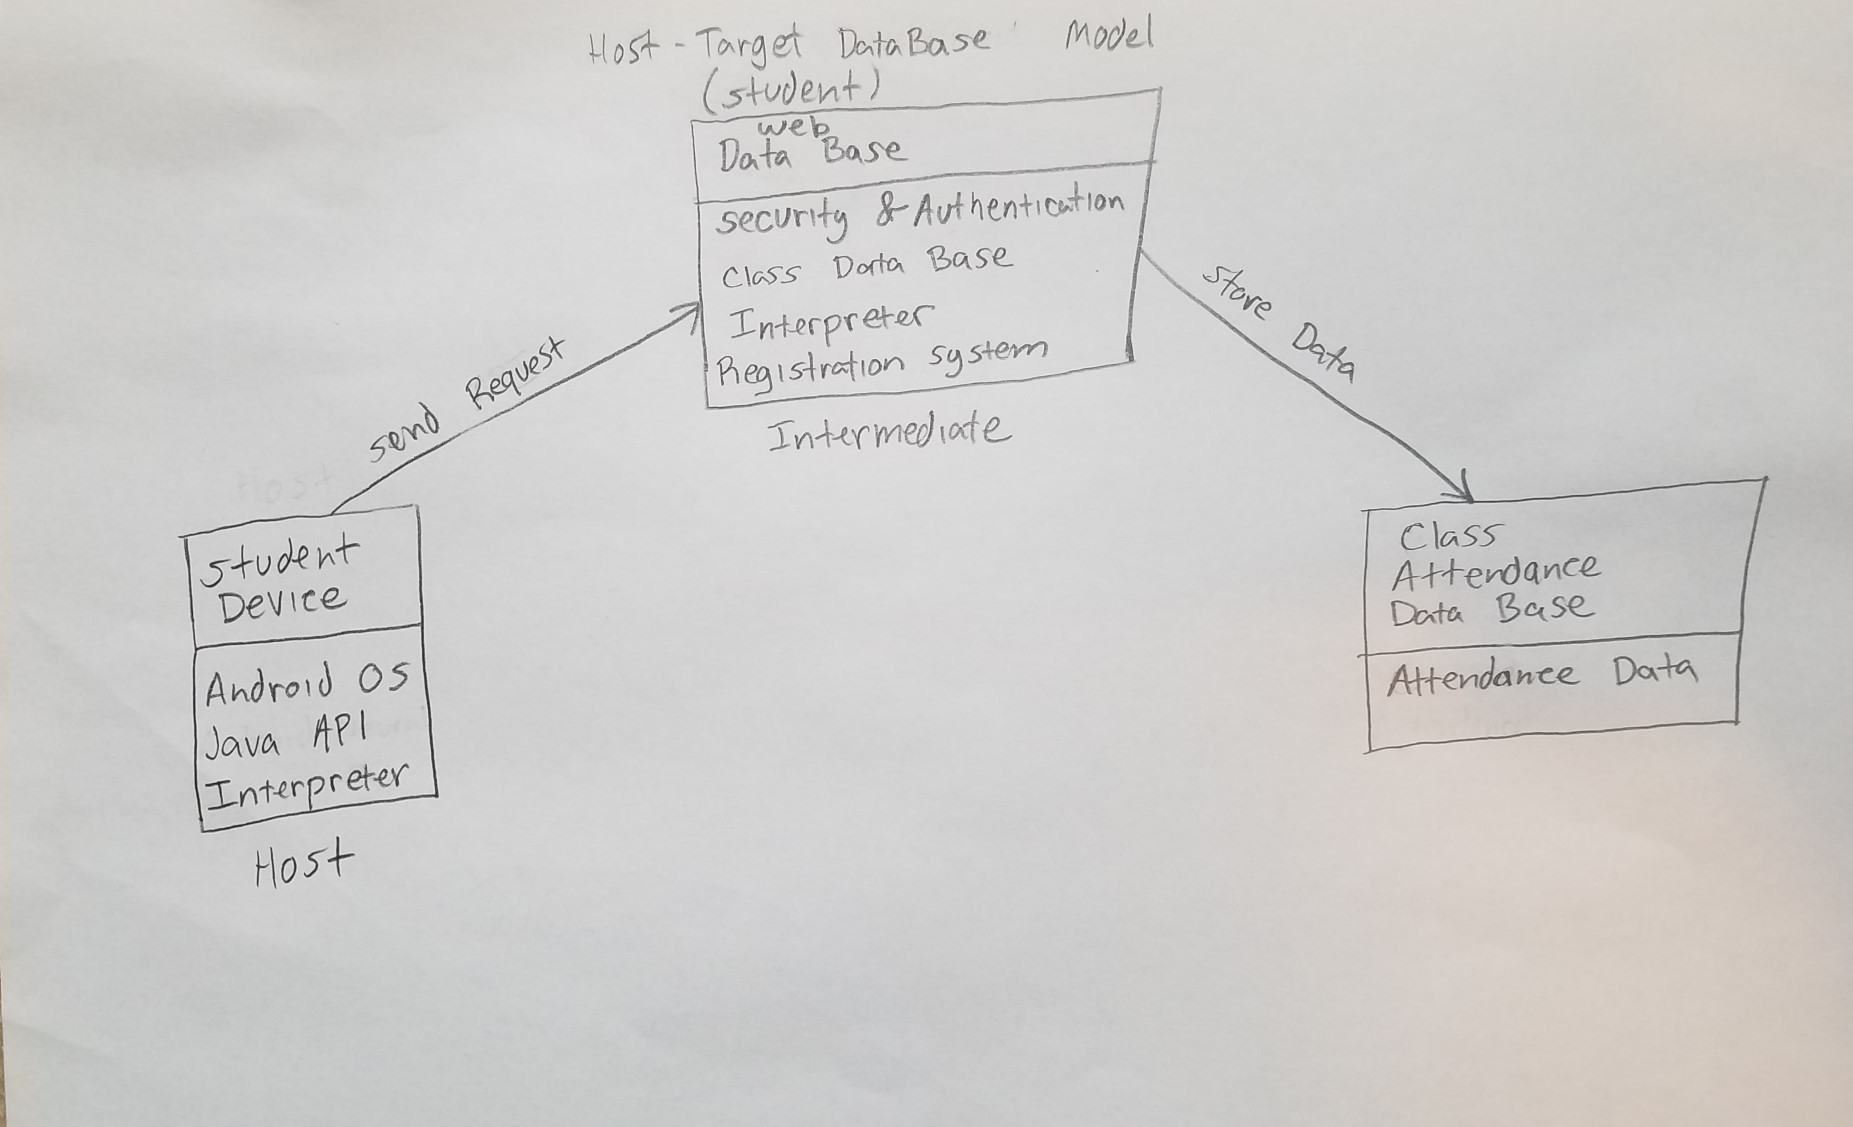 Host - Target DataBase Model
(student)
web
Data Base
security & Authentication
Class Data Base
Interpreter
Registration system
Intermediate
send Request
Store Data
Host
Student
Device
Android OS
Java API
Interpreter
Host
Class
Attendance
Data Base
Attendance Data